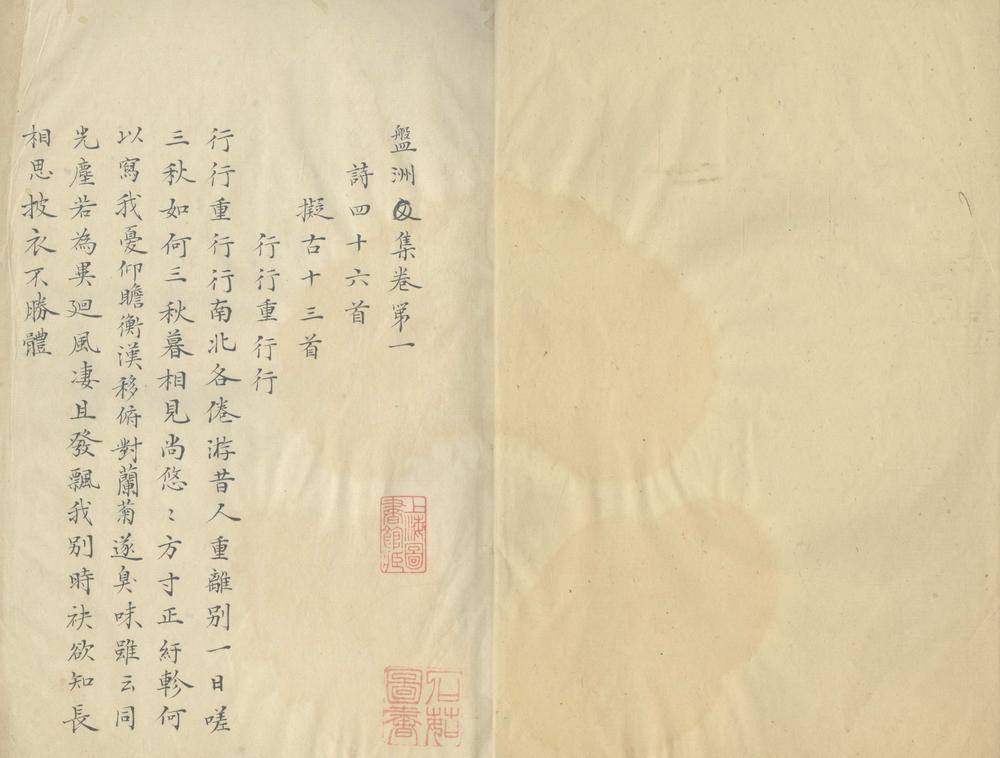 盤洲文集卷第一
詩四十六首
擬古十三首
行行重行行
行行重行行南北各倦游昔人重離別一日嗟
三秋如何三秋暮相見尚悠〻方寸正紆軫何
以寫我憂仰瞻衡漢移俯對蘭菊遂臭味雖云同
光塵若為異廻風淒且發飄我別時袂欲知長
相思披衣不勝體
上海圖書館藏
圖書